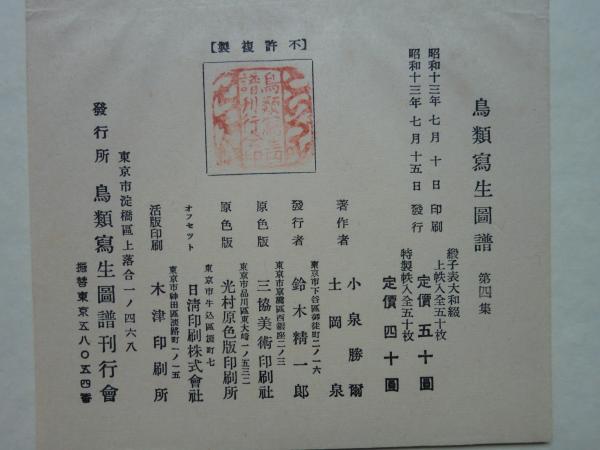 鳥類寫生圖譜 第四集
昭和十三年七月十日 印刷
昭和十三年七月十五日 發行
緞子表大和綴
上帙入全五十枚
定價五十圓
特製帙入全五十枚
定價四十圓
【不許複製】
鳥類寫生圖譜刊行會印
著作者
小泉勝爾
土岡泉
東京市下谷區御徒町二ノ一六
發行者 鈴木精一郎
東京市京橋區西銀座二ノ三
原色版 三協美術印刷社
東京市品川區東大崎一ノ五三二
原色版 光村原色版印刷所
東京市牛込區榎町七
オフセット 日淸印刷株式會社
東京市神田區淡路町一ノ一五
活版印刷 木津印刷所
東京市淀橋區上落合一ノ四六八
發行所 鳥類寫生圖譜刊行會
振替東京五八〇五四番